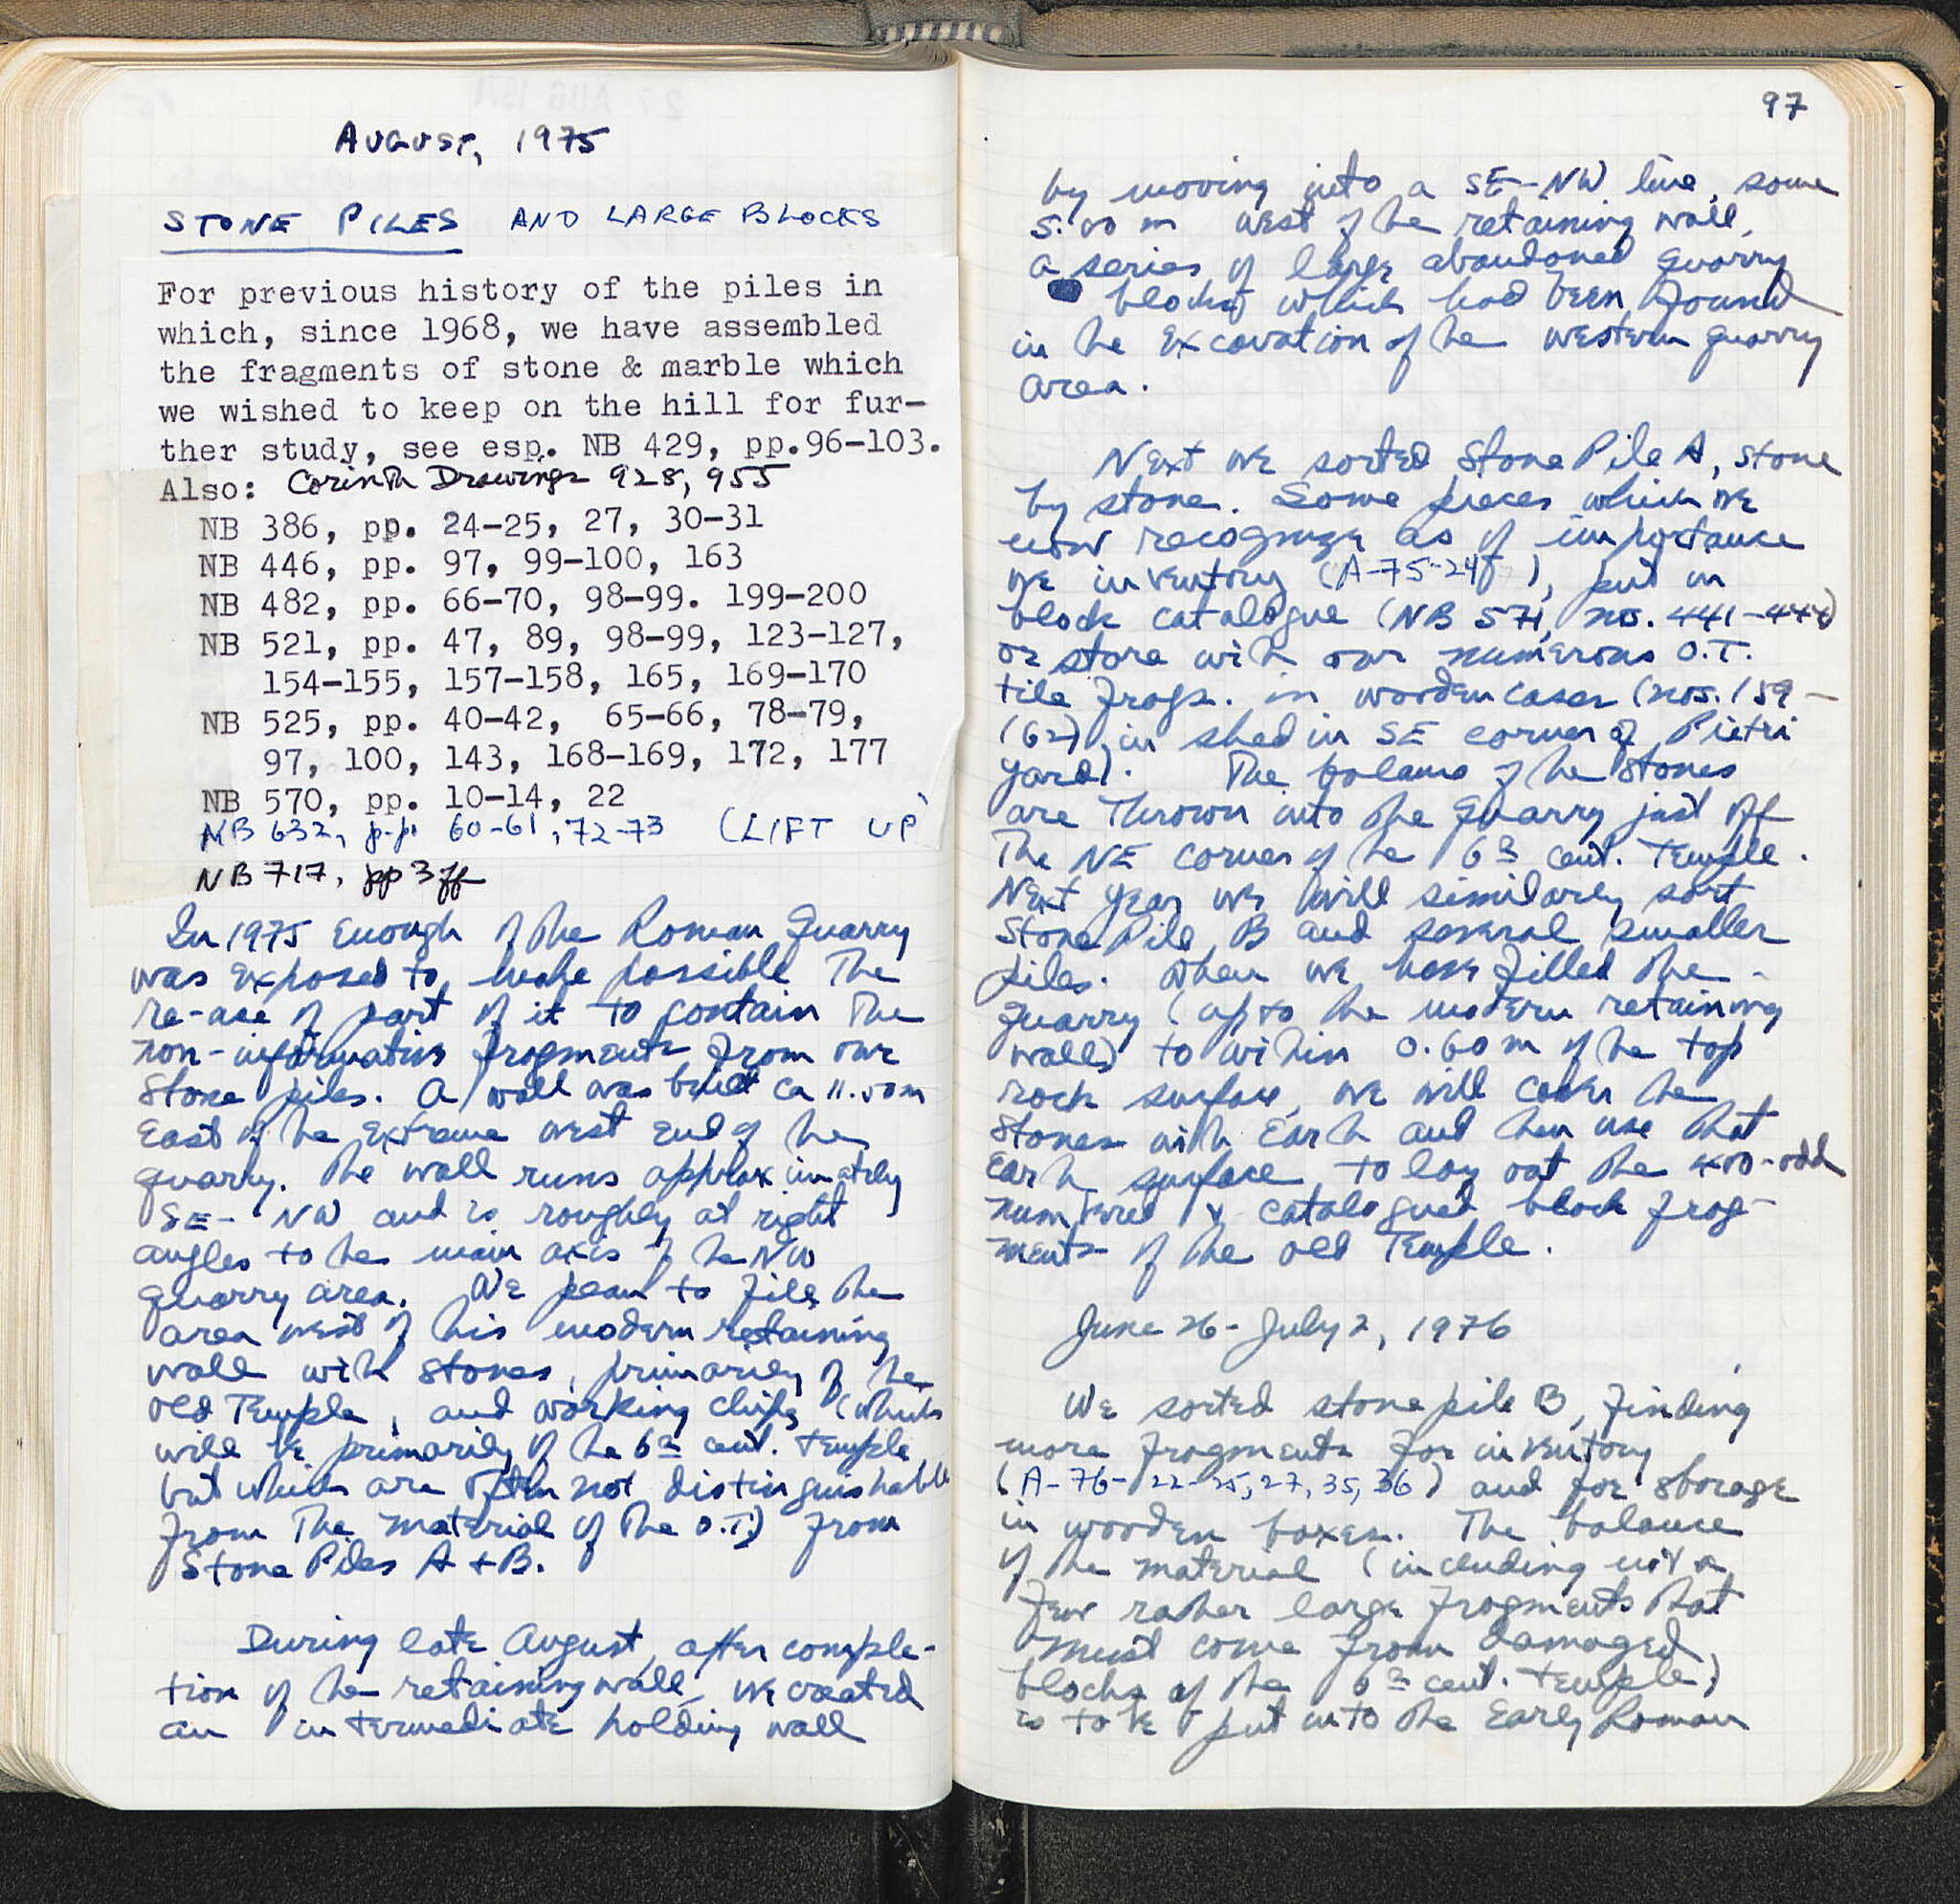 August, 1975
STONE PILES AND LARGE BLOCKS
For previous history of the piles in
which, since 1968, we have assembled
the fragments of stone & marble which
we wished to keep on the hill for fur-
ther study, see esp. NB 429, pp.96-103.
Also: Corinth Drawings 928, 955
NB 386, pp. 24-25, 27, 30-31
NB 446, pp. 97, 99-100, 163
NB 482, pp. 66-70, 98-99. 199-200
NB 521, pp. 47, 89, 98-99, 123-127,
154-155, 157-158, 165, 169-170
NB 525, pp. 40-42, 65-66, 78-79,
97, 100, 143, 168-169, 172, 177
NB 570, pp. 10-14, 22
NB 632, p.p. 60-61, 72-73 (LIFT UP)
NB 717, pp 3 ff
In 1975 enough of the Roman Quarry
was exposed to make possible the
re-use of part of it to contain the
non-informative fragments from our
stone piles. A wall was built ca 11.50m
East of the extreme west end of the
quarry. The wall runs approximately
SE- NW and is roughly at right
angles to the main axis of the NW
quarry area. We plan to fill the
area west of this modern retaining
wall with stones, primarily of the
old Temple, and working chips (which
will be primarily of the 6th cent. temple
but which are often not distinguishable
from the material of the O.T.) from
Stone Piles A + B.
During late August, after comple-
tion of the retaining wall, we created
an intermediate holding wall
97
by moving into a SE-NW line, some
5.00 m west of the retaining wall,
a series of large abandoned quarry
blocks which had been found
in the excavation of the western quarry
area.
Next we sorted Stone Pile A, stone
by stone. Some pieces which we
now recognize as of importance
we inventory (A-75-24f), put in
block catalogue (NB 571, nos. 441-444)
or store with our numerous O.T.
tile frags. in wooden cases (nos. 159-
162) in shed in SE corner of Pietri
yard). The balance of the stones
are thrown into the Quarry just off
The NE corner of the 6th cent. Temple.
Next year we will similarly sort
Stone Pile B and several smaller
piles. When we have filled the
quarry (up to the modern retaining
wall) to within 0.60 m of the top
rock surface, we will cover the
stones with Earth and then use that
Earth surface to lay out the 400-odd
numbered & catalogued block frag-
ments of the old Temple.
June 26 - July 2, 1976
We sorted stone pile B, finding
more fragments for inventory
(A-76- 22-25, 27, 35, 36) and for storage
in wooden boxes. The balance
of the material (including not a
few rather large fragments that
must come from damaged
blocks of the 6th cent. temple)
is to be put into the Early Roman